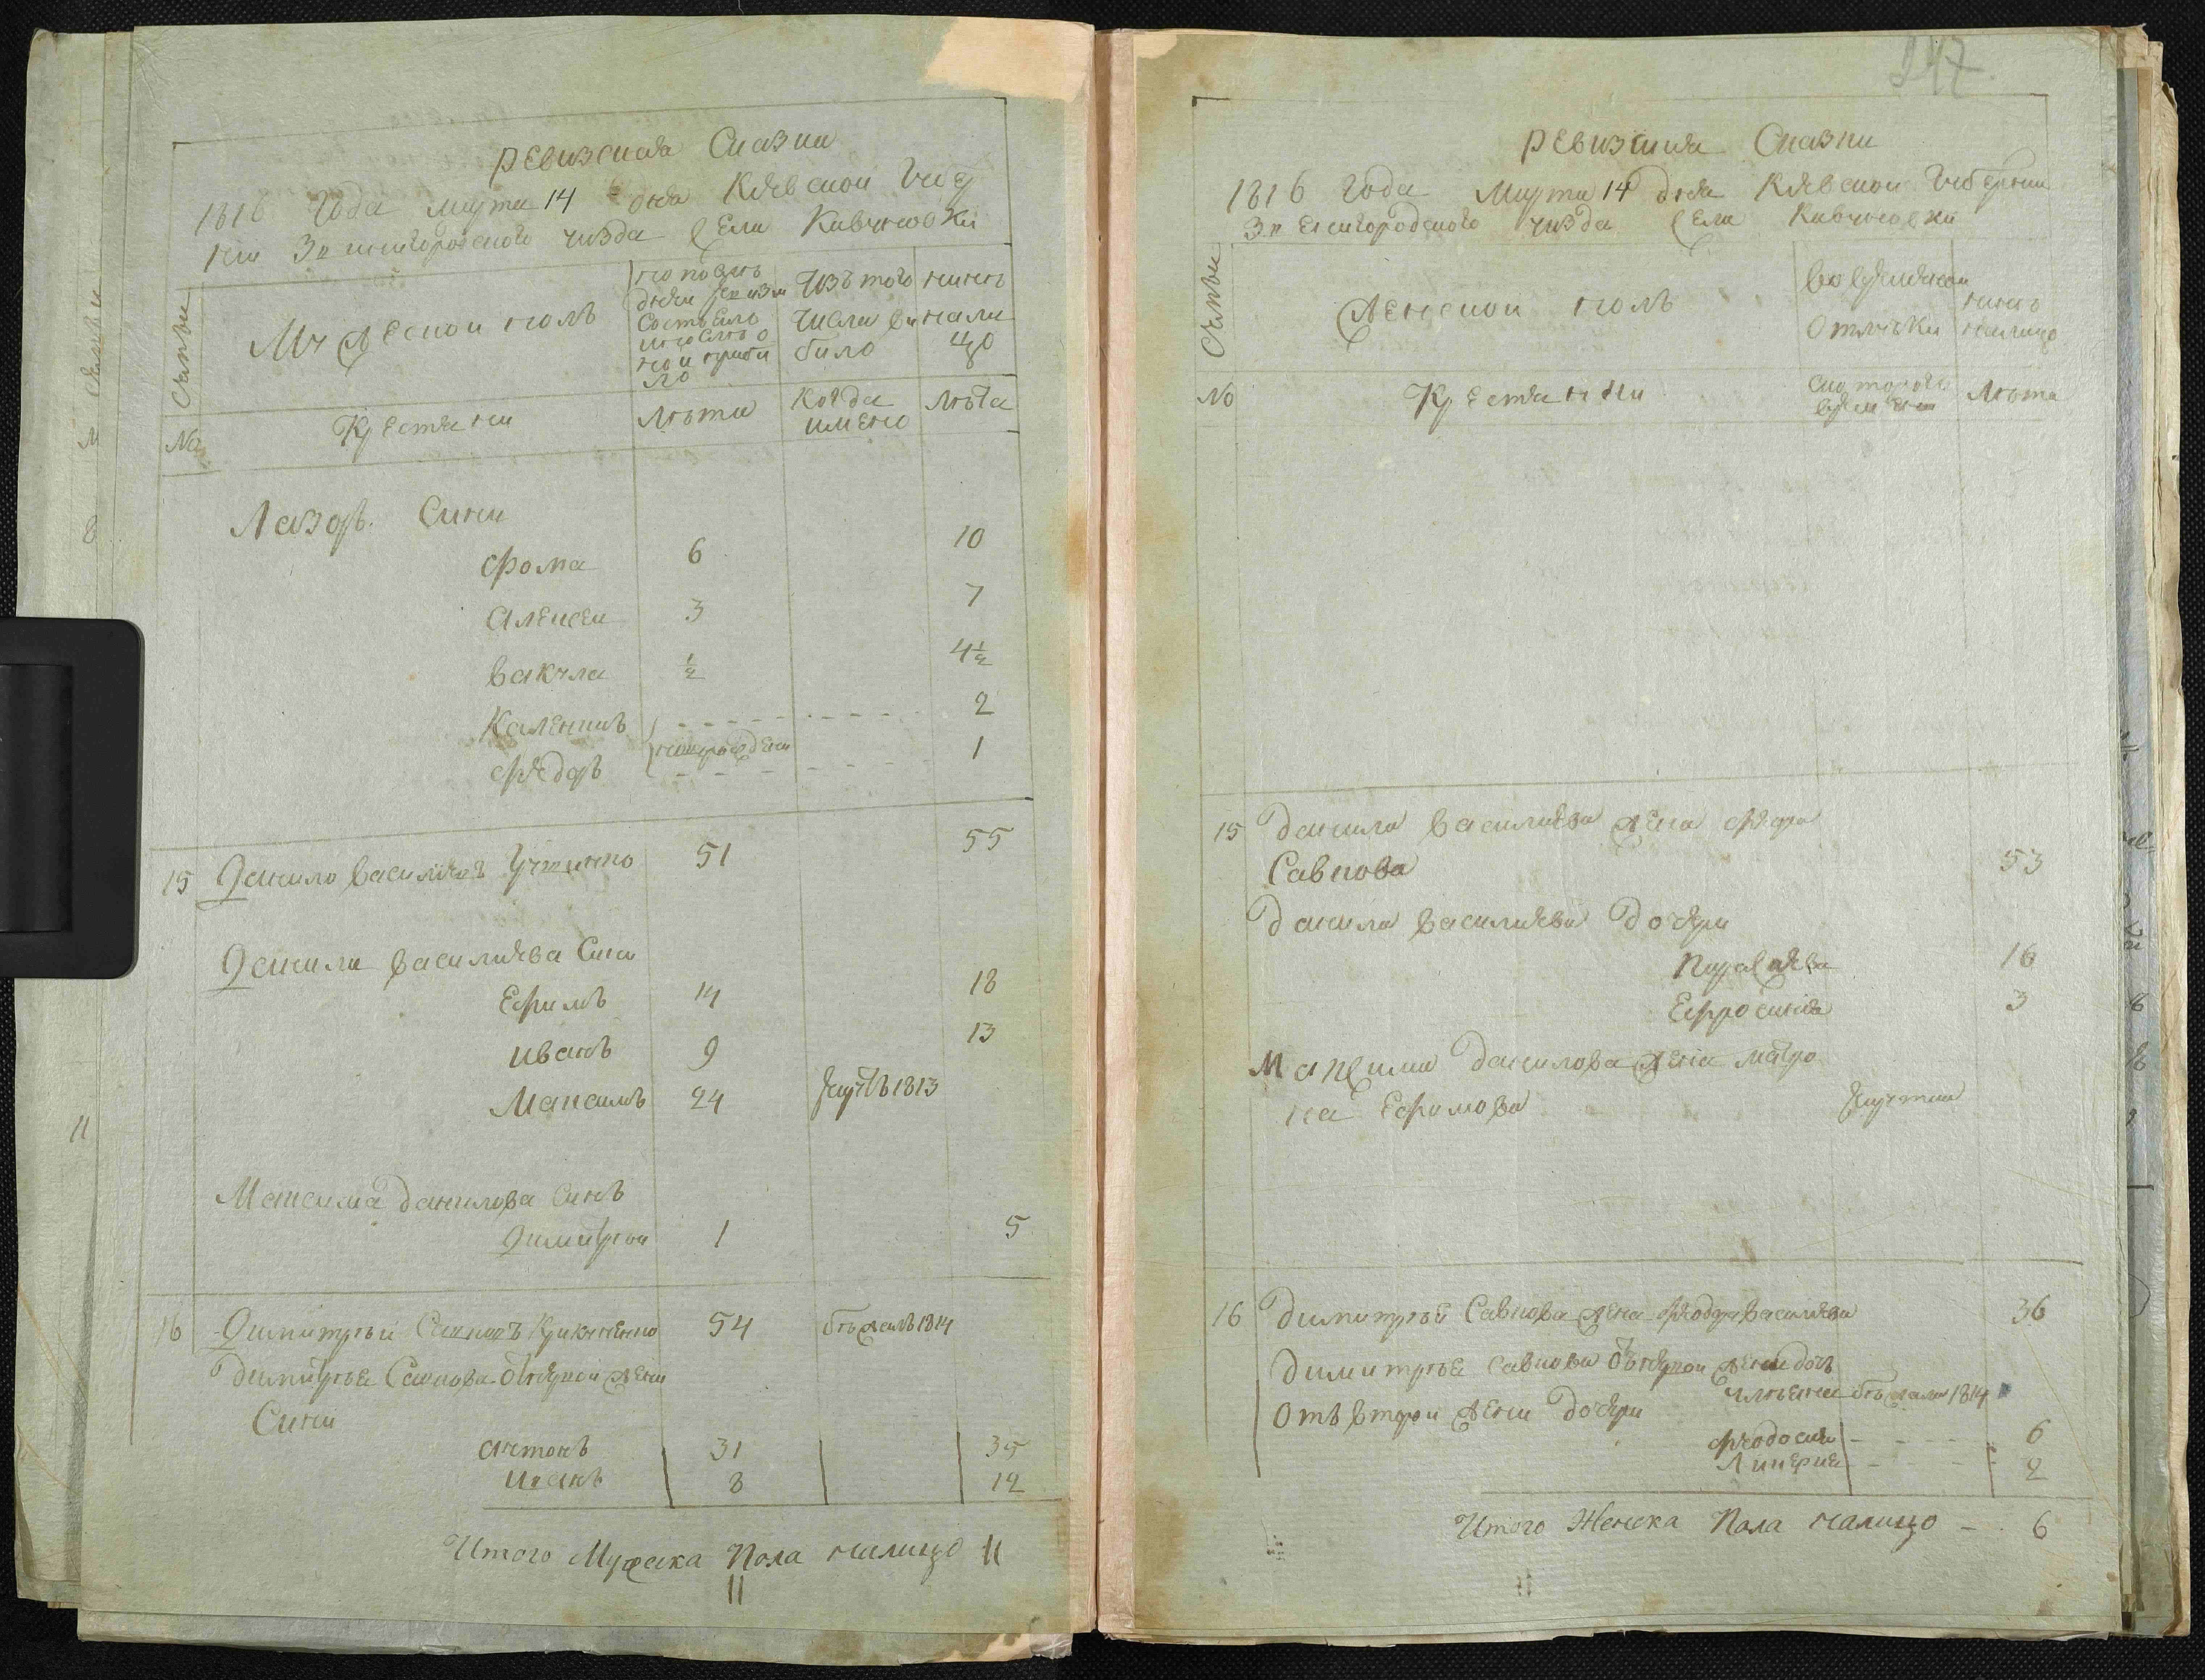 ревизская Сказка
1816 года марта 14 дня Киевской губер
нии Звенигородского уезда села
Семьи
Мужеской полъ
по последней ревизии состояло и после оной прибыло
Изъ того числа выбыло
ныне налицо
№
Крестяни
Лѣта
Когда имено
Лѣта
Лазоръ Сини
фома 6 10
Алексеи 3 7
вакула ½ 4½
Каленикъ 2
новорождени
фиедоръ 1
15 Данило василиевъ 51 55
Данила василиева Сини
Ефимъ 14 18
иванъ 9 13
Максимъ 24 1813
Максима данилова синъ
Димитрои 1 5
16 Димитрьи 54 бежалъ 1814
Димитрье Савкова от первой жени
Сини
антонъ 31 35
исакъ 8 12
Итого Мужска Пола налицо 11
11
247
ревизская Сказка
1816 года Марта 14 дня Киевской губернии
Звенигородского уезда села
Семьи
Женской полъ
во временной отлучки
ныне налицо
№
Крестянки
с которого времени
Лѣта
15 Данила василиева жена
Савкова 53
Данила василиева дочери
Параскиева 16
Ефросиния 3
Максима данилова жена матро
на Ефимова
16 Димитрьи Савкова жена феодора василиева 36
Димитрье савкова от первой жени дочъ
улиена бежала 1814
Отъ второи жени дочери
феодосия 6
Ликерия 2
Итого Женска Пола налицо - 6